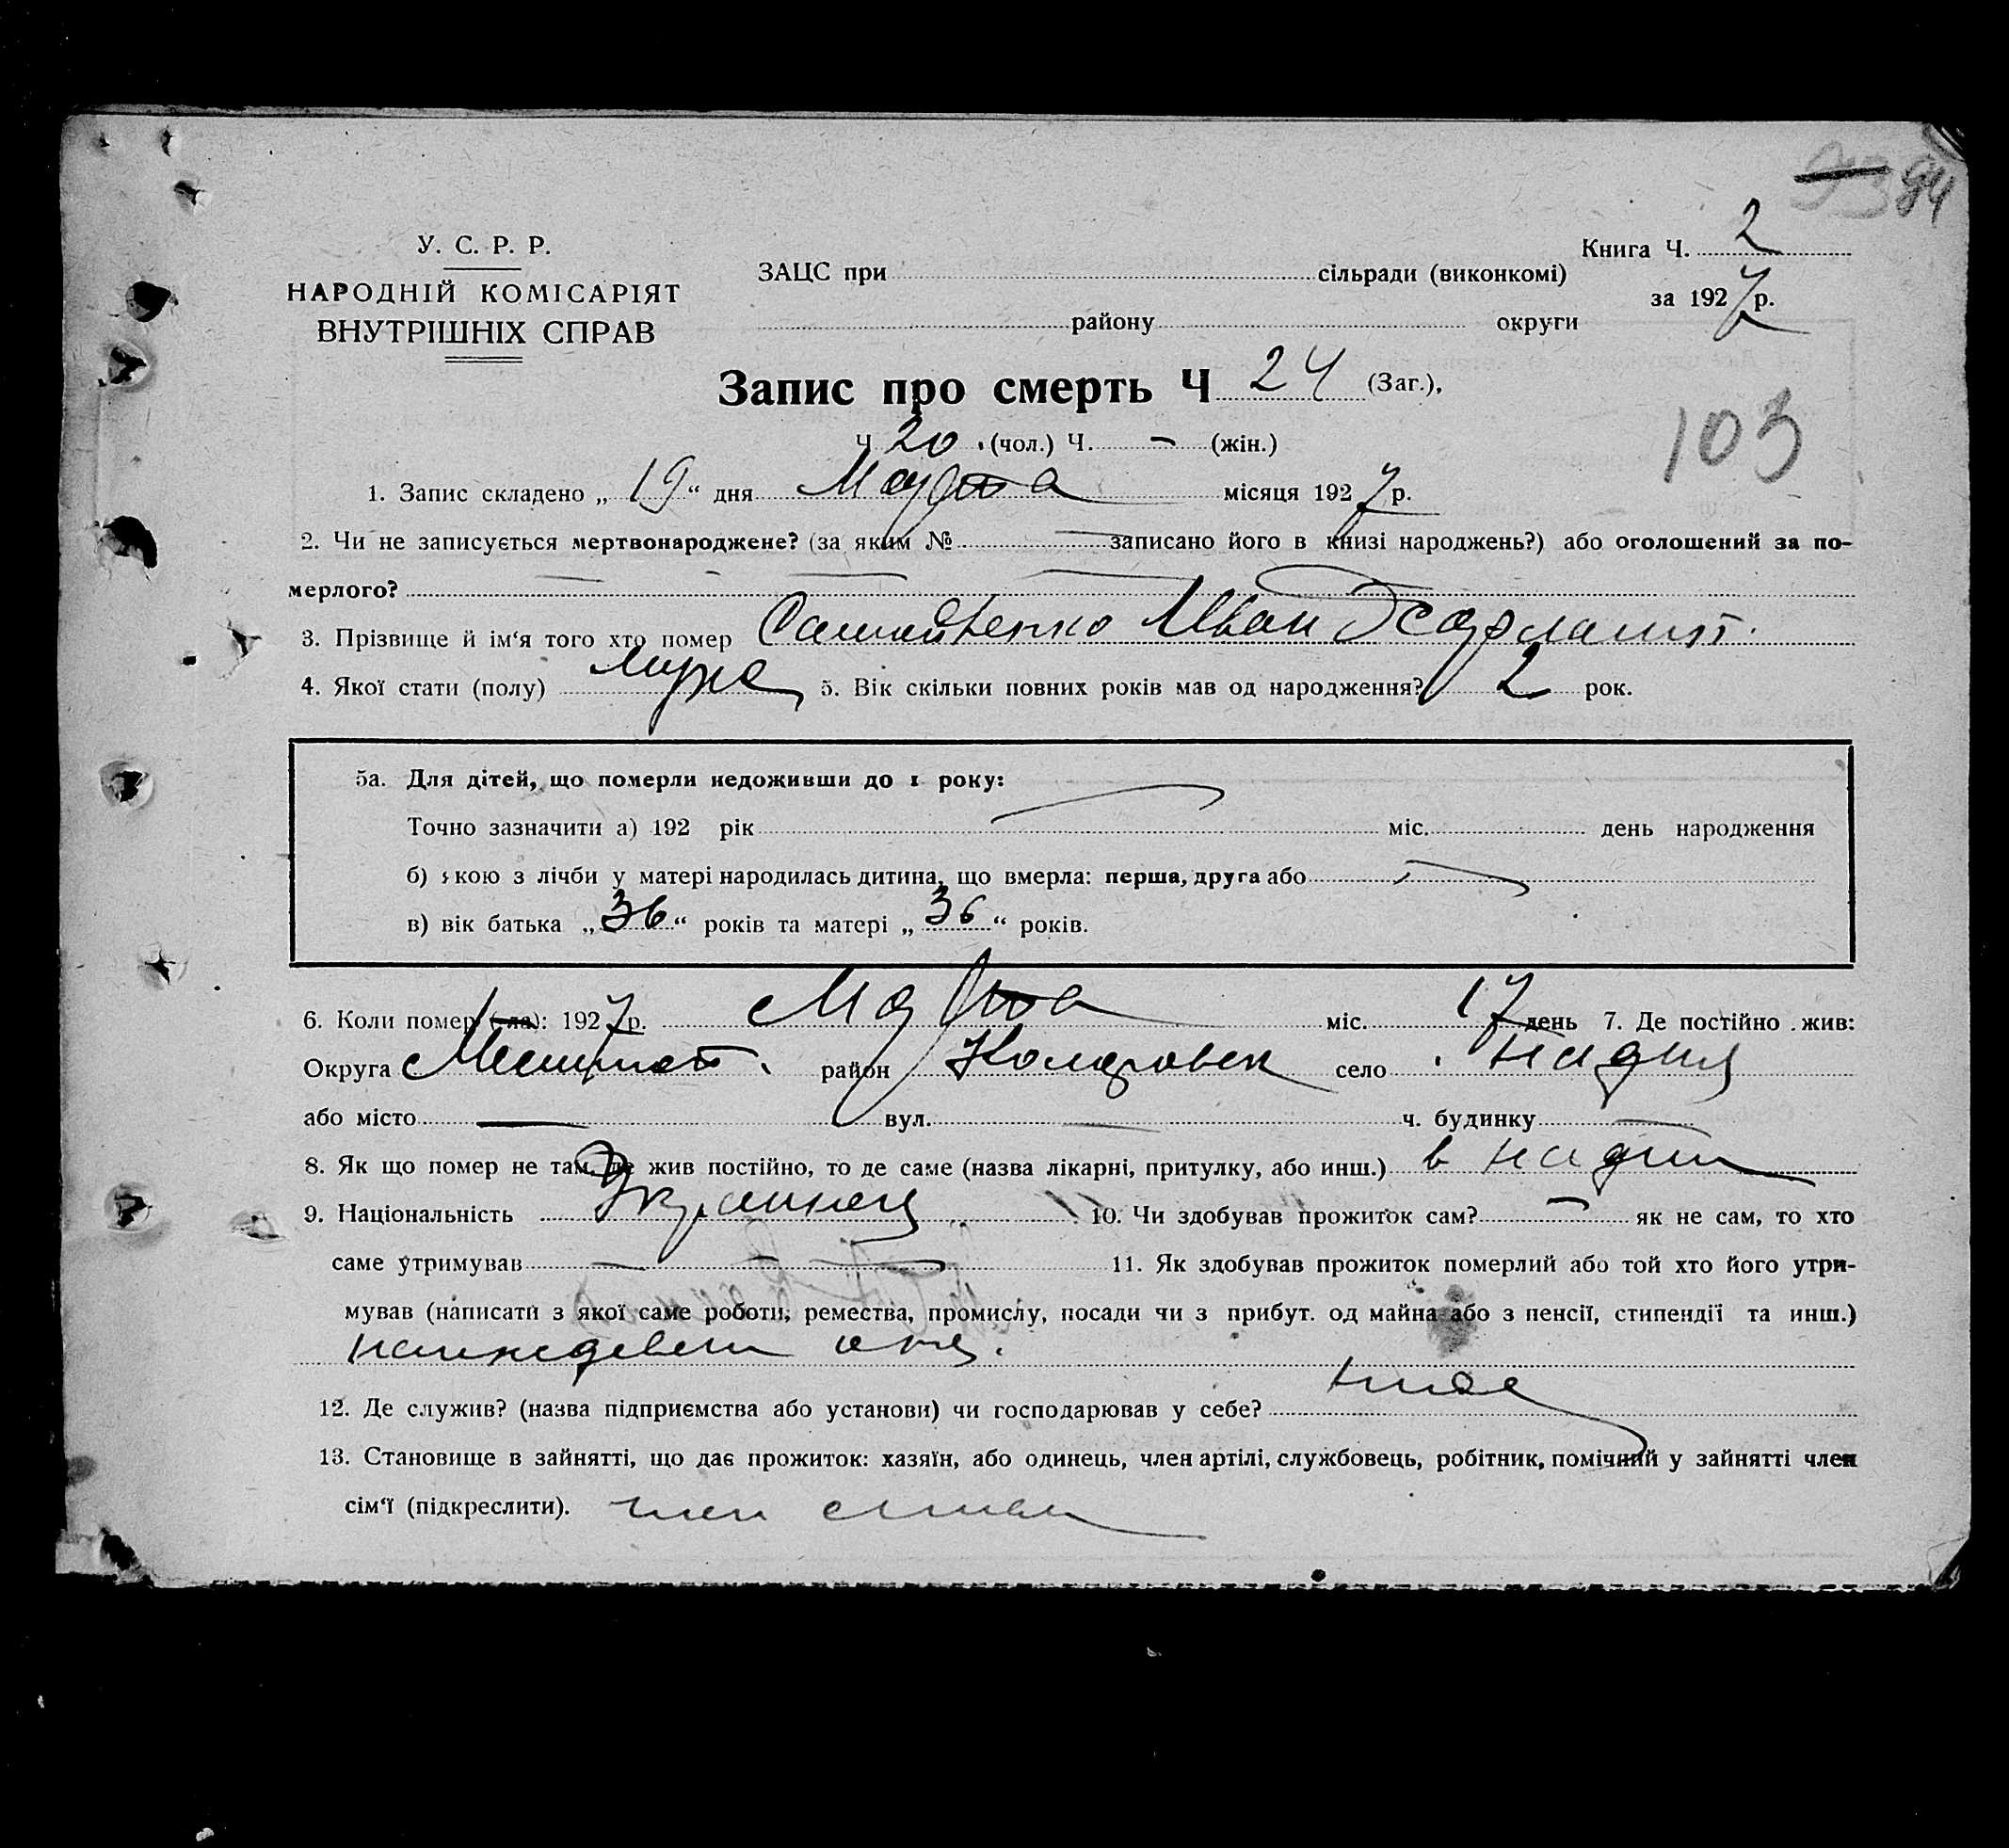 84
У. С. Р. Р.
НАРОДНІЙ КОМІСАРІЯТ
ВНУТРІШНІХ СПРАВ
Книга Ч. 2
за 1927 р.
ЗАЦС при сільради (виконкомі)
району округи
Запис про смерть Ч 24 (Заг.),
Ч 20 (чол.) Ч. - (жін.)
103
1. Запис складено „ 19 “ дня Марта місяця 1927 р.
2. Чи не записується мертвонароджене? (за яким № записано його в книзі народжень?) або оголошений за по-
мерлого?
3. Прізвище й ім‘я того хто помер Иван
4. Якої стати (полу) муже 5. Вік скільки повних років мав од народження? 2 рок.
5а. Для дітей, що померли недоживши до 1 року:
Точно зазначити а) 192 рік міс. день народження
б) якою з лічби у матері народилась дитина, що вмерла: перша, друга або
в) вік батька „ 36 “ років та матері „ 36 “ років.
6. Коли помер (-ла): 1927 р. Марта міс. 17 день 7. Де постійно жив:
Округа район село
або місто вул. ч. будинку
8. Як що помер не там, де жив постійно, то де саме (назва лікарні, притулку, або инш.) в
9. Національність Украинец 10. Чи здобував прожиток сам? як не сам, то хто
саме утримував 11. Як здобував прожиток померлий або той хто його утри-
мував (написати з якої саме роботи, ремества, промислу, посади чи з прибут. од майна або з пенсії, стипендії та инш.)
иждевен отц.
12. Де служив? (назва підприємства або установи) чи господарював у себе?
13. Становище в зайнятті, що дає прожиток: хазяїн, або одинець, член артілі, службовець, робітник, помічний у зайнятті член
сім‘ї (підкреслити). член семьи